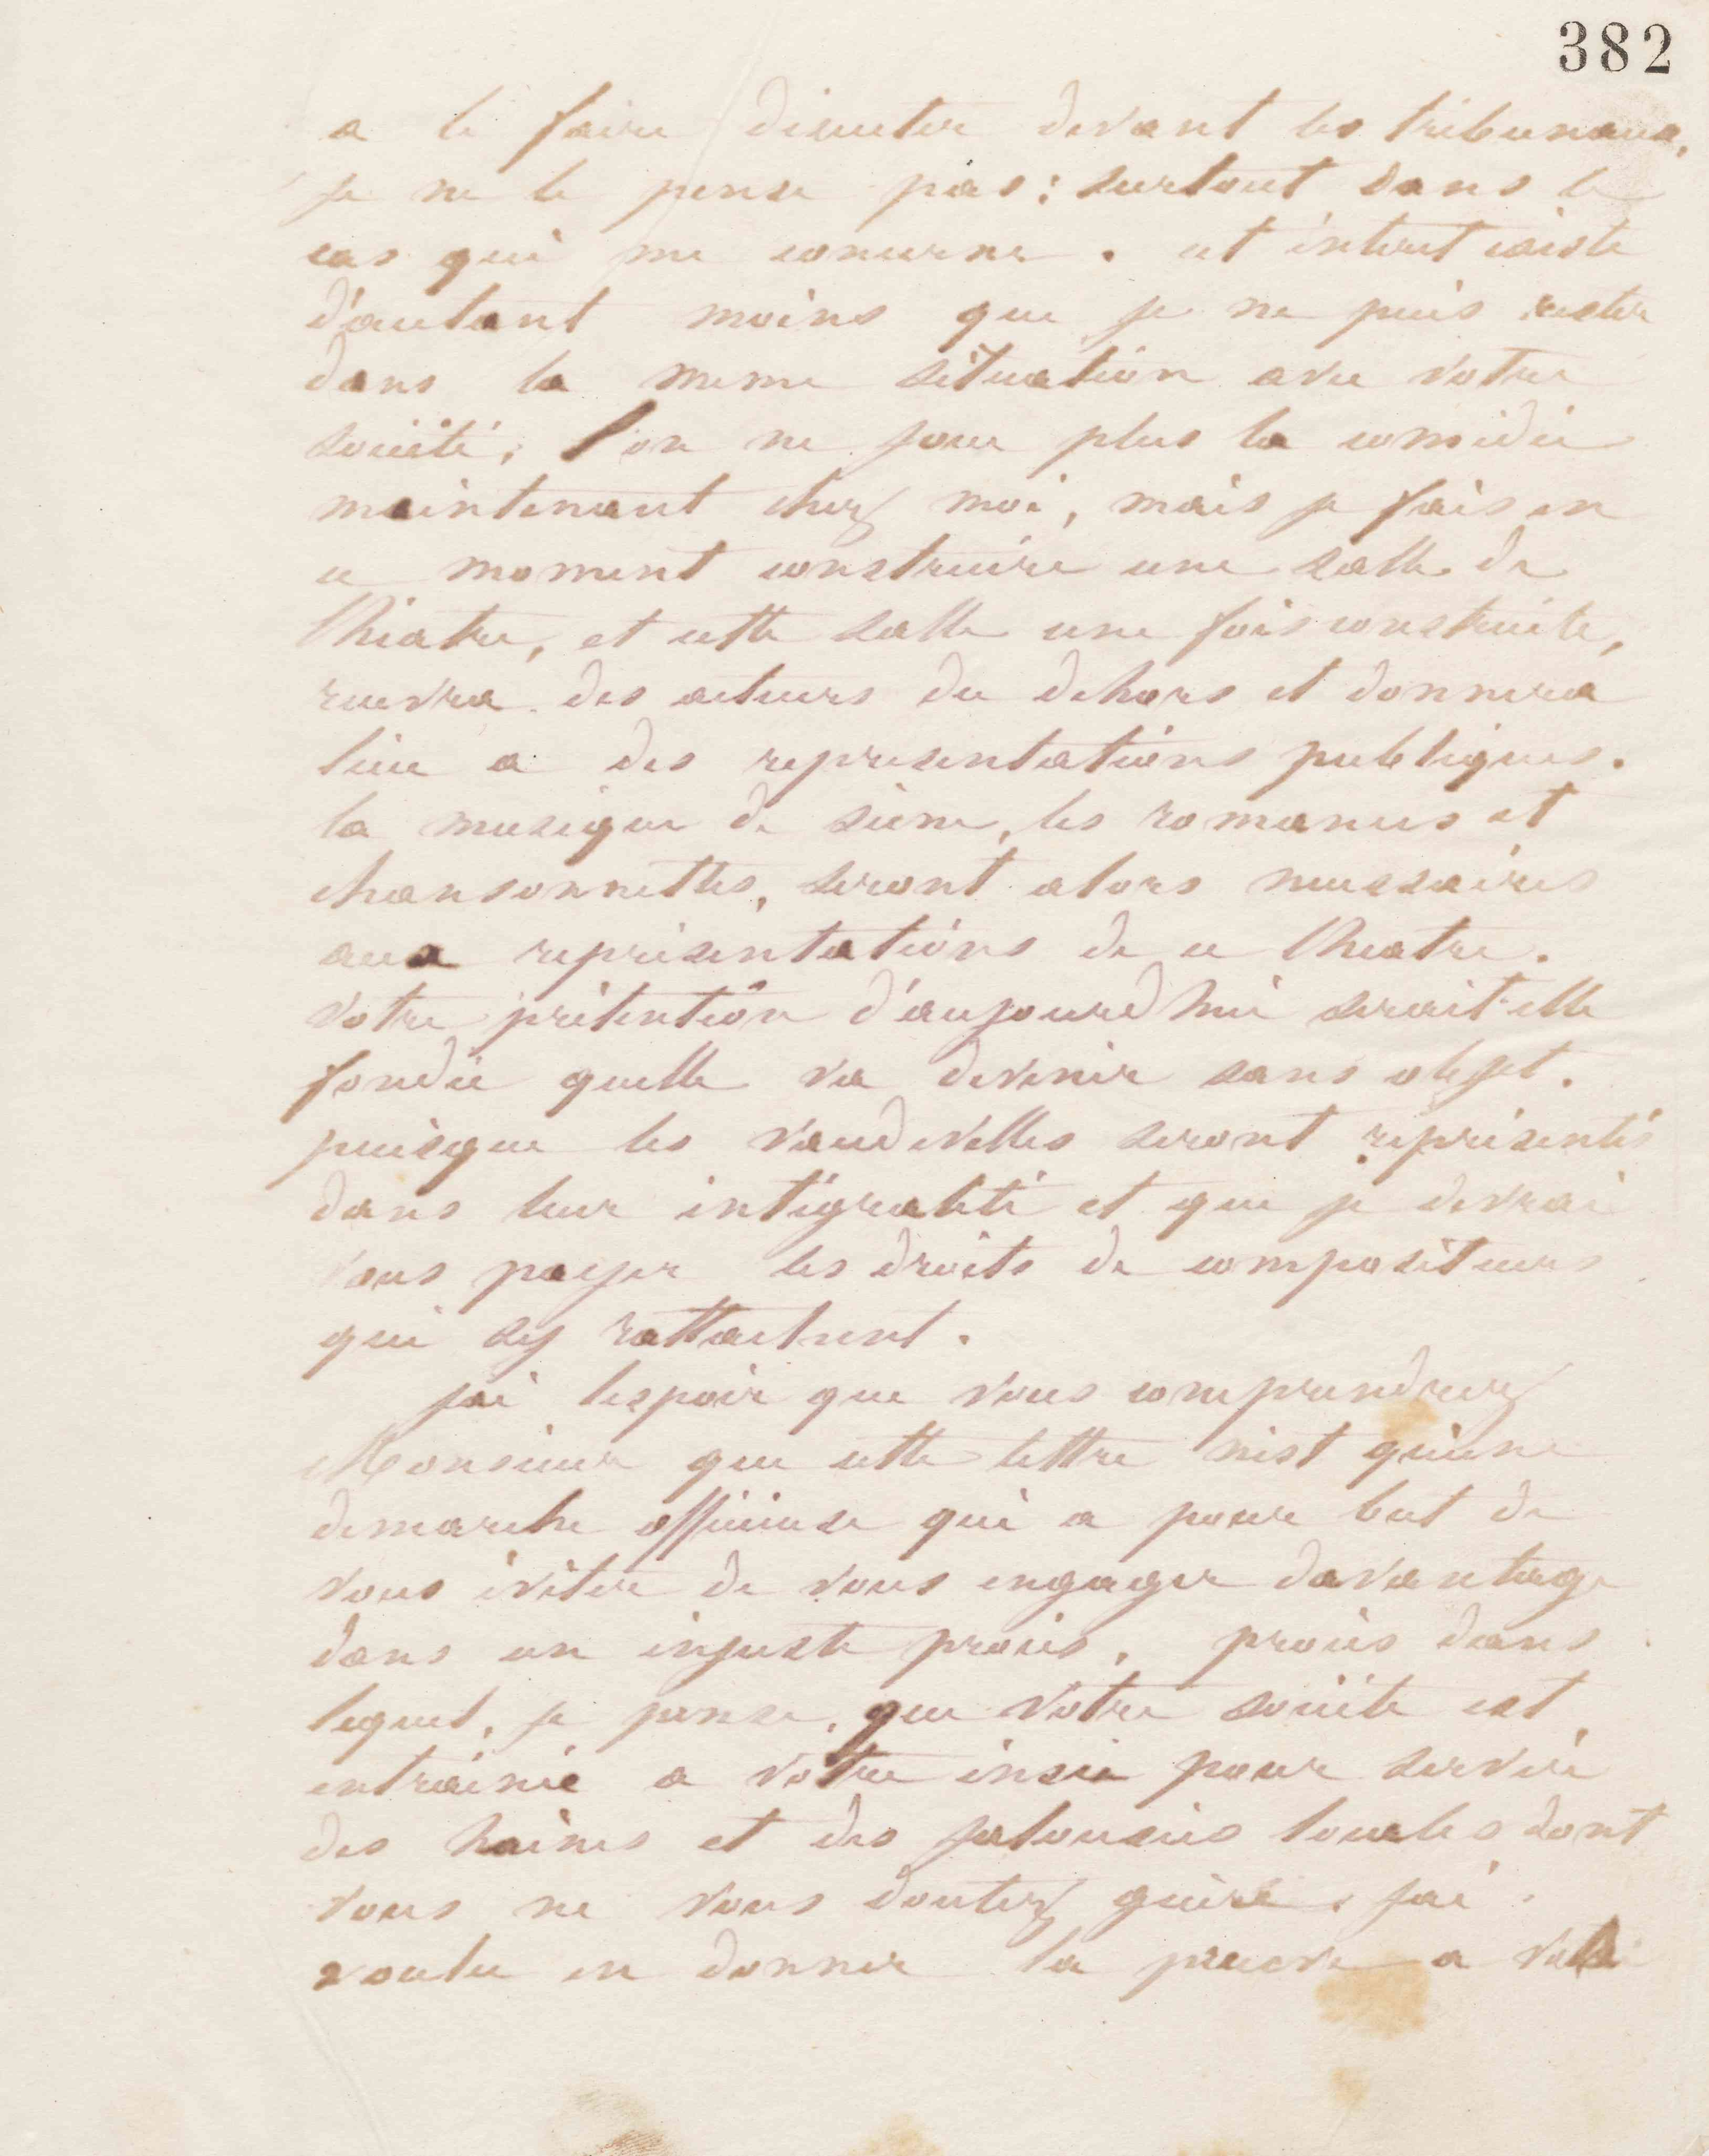 382
a le faire discuter devant les tribunaux,
je ne le pense pas : surtout dans le
cas qui me concerne. cet interet existe
d'autant moins que je ne puis rester
dans la meme situation avec votre
société, l'on ne joue plus la comédie
maintenant chez moi, mais je fais en
ce moment construire une salle de
théatre, et cette salle une fois construite,
recevra des acteurs du dehors et donnera
lieu a des representations publiques.
la musique de scène, les romances et
chansonnettes, seront alors necessaires
aux représentations de ce theatre.
votre prétention d'aujourd'hui serait-elle
fondée quelle va devenir sans objet.
puisque les vaudevilles seront représentés
dans leur intégralité et que je devrai
vous payer les droits de compositeurs
qui sy rattachent.
jai lespoir que vous comprendrez
Monsieur que cette lettre n'est qu'une
demarche officieuse qui a pour but de
vous éviter de vous engager davantage
dans un injuste procès, procès dans
lequel, je pense, que votre société est
entrainée a votre insu pour servir
des haines et des jalousies locales dont
vous ne vous doutez guère. jai
voulu en donner la preuve a